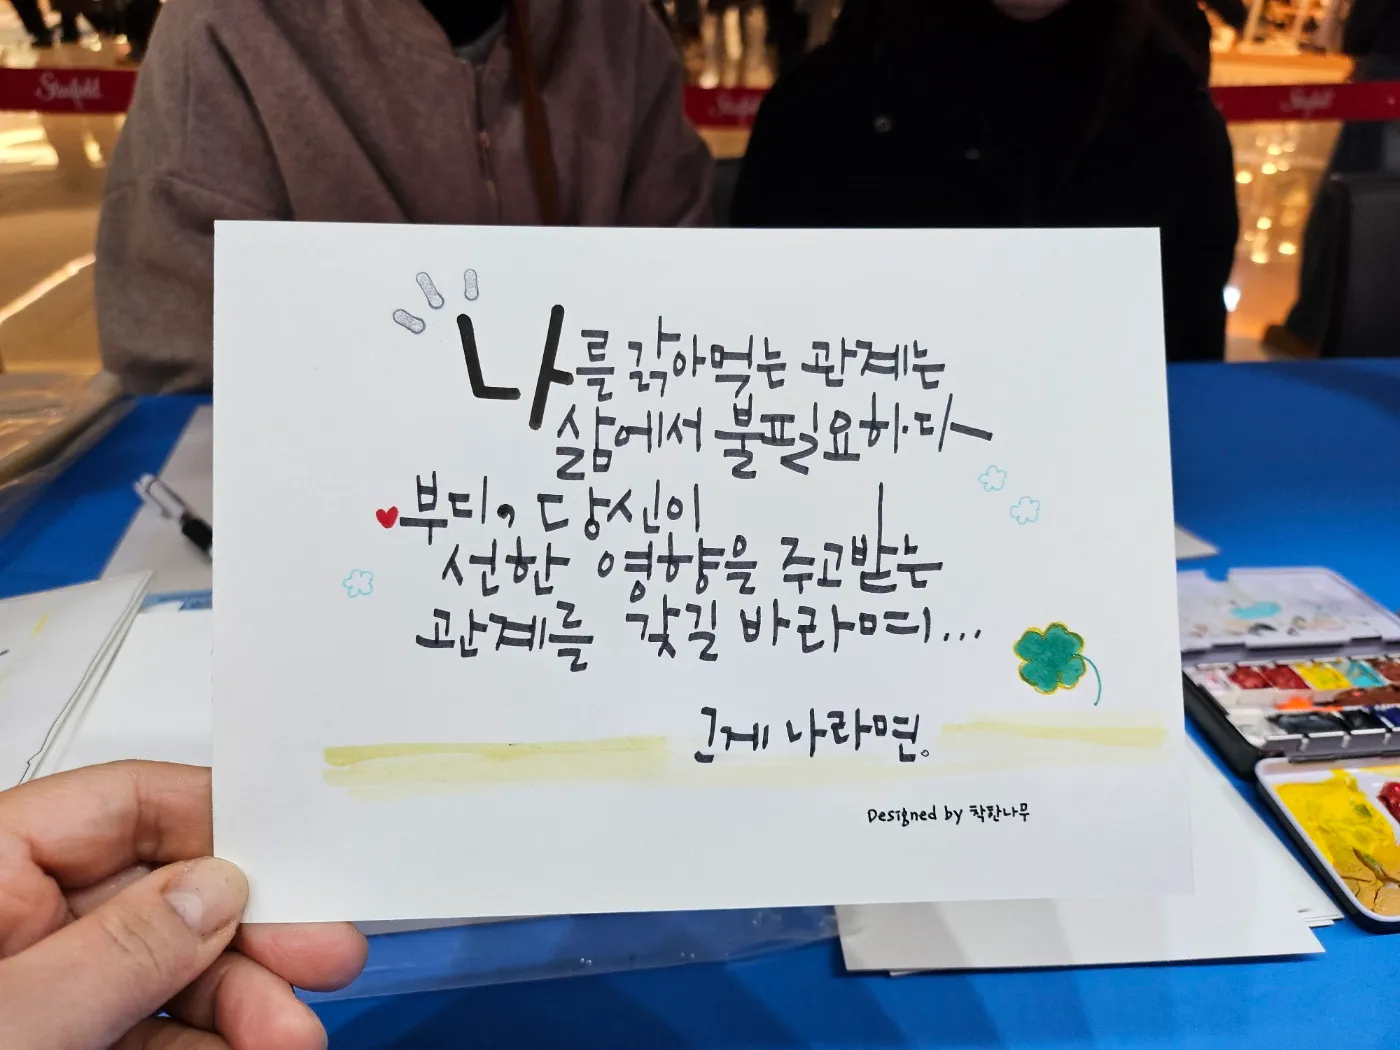 Starfield
나를 갉아먹는 관계는
삶에서 불필요하다~
부디, 당신이
선한 영향을 주고받는
관계를 갖길 바라며...
그게 나라면。
Designed by 착한나무